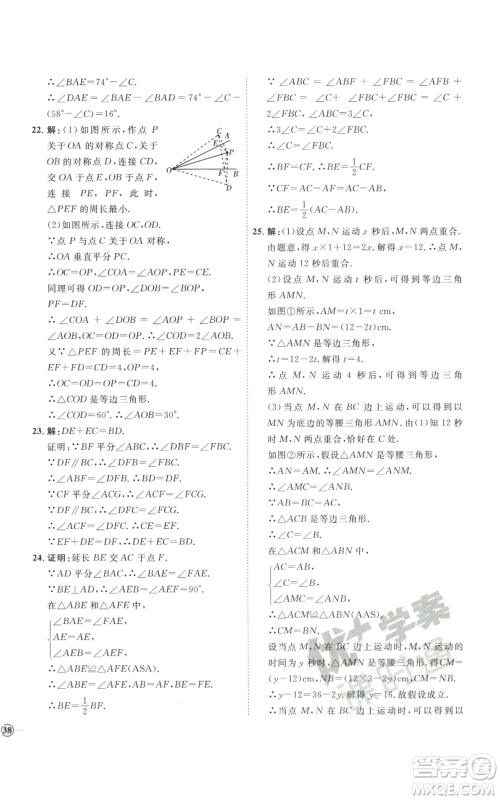 ∴∠BAE=74°-∠C.
∴∠DAE=∠BAE-∠BAD=74°-∠C-
(58°-∠C)=16°.
22. 解:(1)如图所示,作点 P
关于 OA 的对称点 C,关于
OB 的对称点 D,连接 CD,
交 OA 于点 E,交 OB 于点 F,
连接 PE, PF, 此时,
△PEF 的周长最小.
(2)如图所示,连接 OC,OD.
∵点 P 与点 C 关于 OA 对称,
∴OA 垂直平分 PC.
∴OC=OP,∠COA=∠AOP,PE=CE.
同理可得 OD=OP,∠DOF=∠POF,
PF=DF.
∴∠COA+∠DOB=∠AOP+∠POB=
∠AOB=30°,OC=OD=OP=4 cm.
∴∠COD=60°.
又∵△PEF 的周长=PE+EF+PF=
CE+EF+FD=CD=OP=4,
∴OC=OD=CD=4.
∴△COD 是等边三角形.
∴∠COD=60°.
23. 解:DE+EC=BD.
证明:∵BF 平分∠ABC,
∴∠ABF=∠FBC.
∵DF∥BC,∴∠DFB=∠FBC.
∴∠DBF=∠DFB.
∴BD=DF.
∵CF 平分∠ACG,
∴∠ACF=∠FCG.
∵DF∥BC,∴∠EFC=∠FCG.
∴∠EFC=∠ACF.
∴EC=EF.
∵EF+DE=DF,∴DE+EC=BD.
24. 证明:延长 BE 交 AC 于点 F.
∵AD 平分∠BAC,∴∠BAE=∠CAD.
∵BE⊥AD,∴∠AEB=∠AEF=90°.
在△ABE 和△AFE 中,
∠BAE=∠FAE,
AE=AE,
∠AEB=∠AEF,
∴△ABE≌△AFE(ASA).
∴∠ABF=∠AFB,AB=AF,BE=EF.
∴BE=1/2 BF.
∵∠ABC=∠ABF+∠FBC=∠AFB+
∠FBC=∠C+∠FBC+∠FBC=∠C+
2∠FBC,∠ABC=3∠C,
∴3∠C=∠C+2∠FBC.
∴∠FBC=∠C.
∴BF=CF.∴BE=1/2 CF.
∵CF=AC-AF=AC-AB,
∴BE=1/2(AC-AB).
25. 解:(1)设点 M,N 运动 x 秒后,M,N 两点重合.
由题意,得 x×1+12=2x.解得 x=12.
∴点 M,N 运动 12 秒后,M,N 两点重合.
(2)设点 M,N 运动 t 秒后,可得到等边三角
形 AMN.
如图①所示,AM=t×1=t(cm),
AN=AB-BN=(12-2t)cm.
∵△AMN 是等边三角形,
∴t=12-2t.解得 t=4.
∴点 M,N 运动 4 秒后,可得到等边三角
形 AMN.
(3)当点 M,N 在 BC 边上运动时,可以得到以
MN 为底边的等腰三角形.由(1)知 12 秒
时 M,N 两点重合,恰好在 C 处.
如图②所示,假设△AMN 是等腰三角形,
∴AN=AM.∴∠AMN=∠ANM.
∴∠AMC=∠ANB.
∵AB=BC=AC,
∴△ACB 是等边三角形.
∴∠C=∠B.
在△ACM 和△ABN 中,
∠AMC=∠ANB,
∠C=∠B,
AC=AB,
∴△ACM≌△ABN(AAS).
∴CM=BN.
设当点 M,N 在 BC 边上运动时,M,N 运动的
时间为 y 秒时,△AMN 是等腰三角形,∴CM=
(y-12)cm,BN=(12×3-2y)cm.∵CM=BN,
∴y-12=36-2y.解得 y=16.故假设成立.
∴当点 M,N 在 BC 边上运动时,能得到以
38